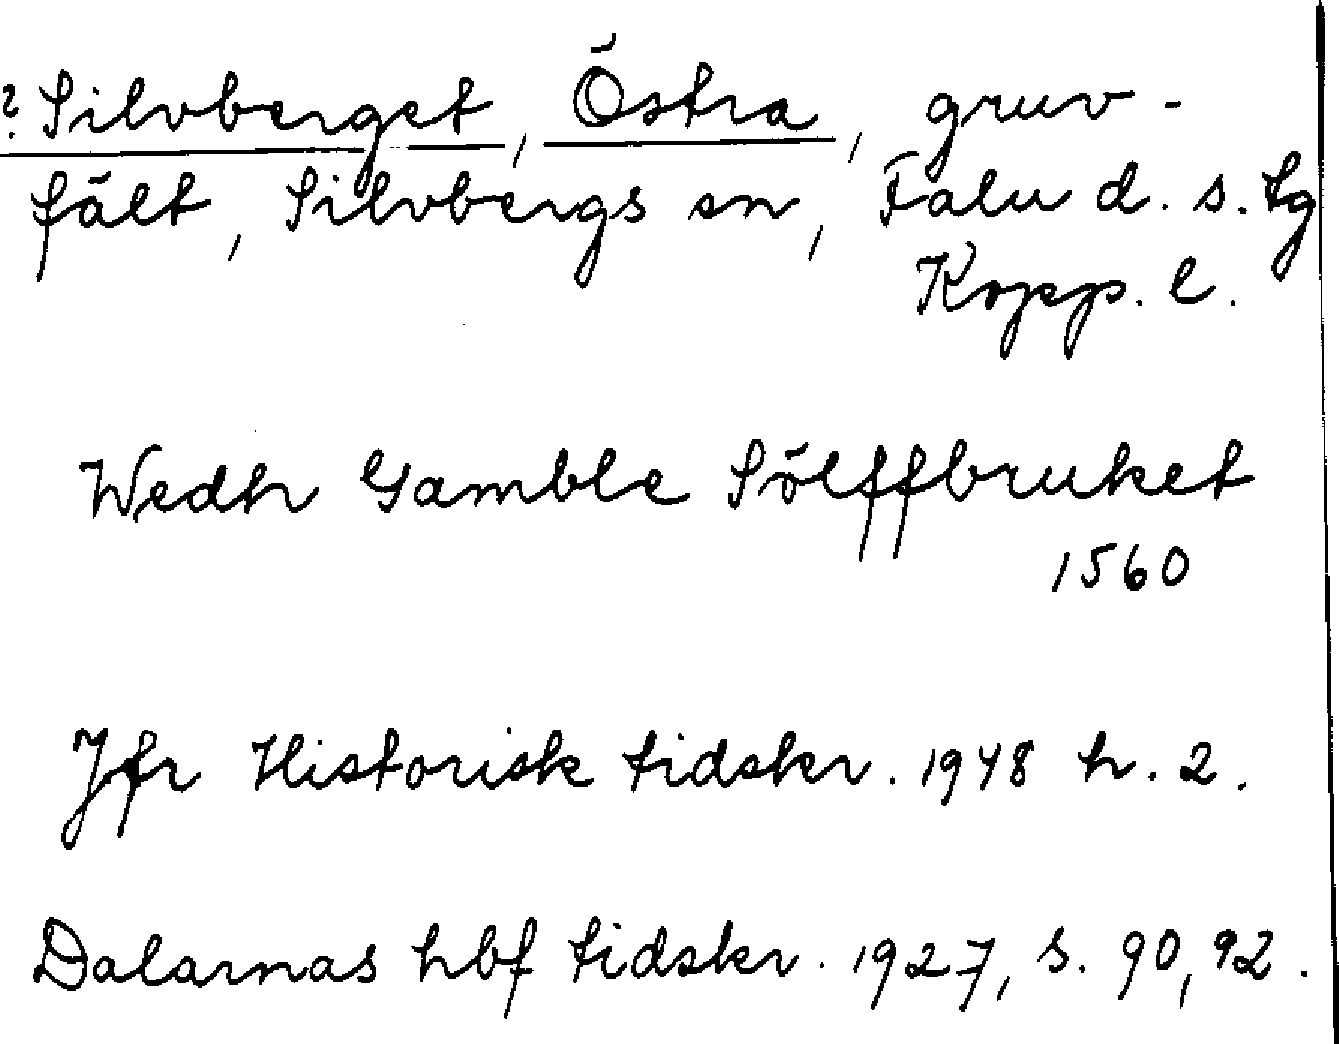 ? Silvberget, Östra, gruv-
fält, Silvbergs sn, Falu d. s. tg
Kopp. l.
Wedh Gamble Sölffbruket
1560
Jfr Historisk tidskr. 1948 h. 2.
Dalarnas hbf tidskr. 1927, s. 90, 92.